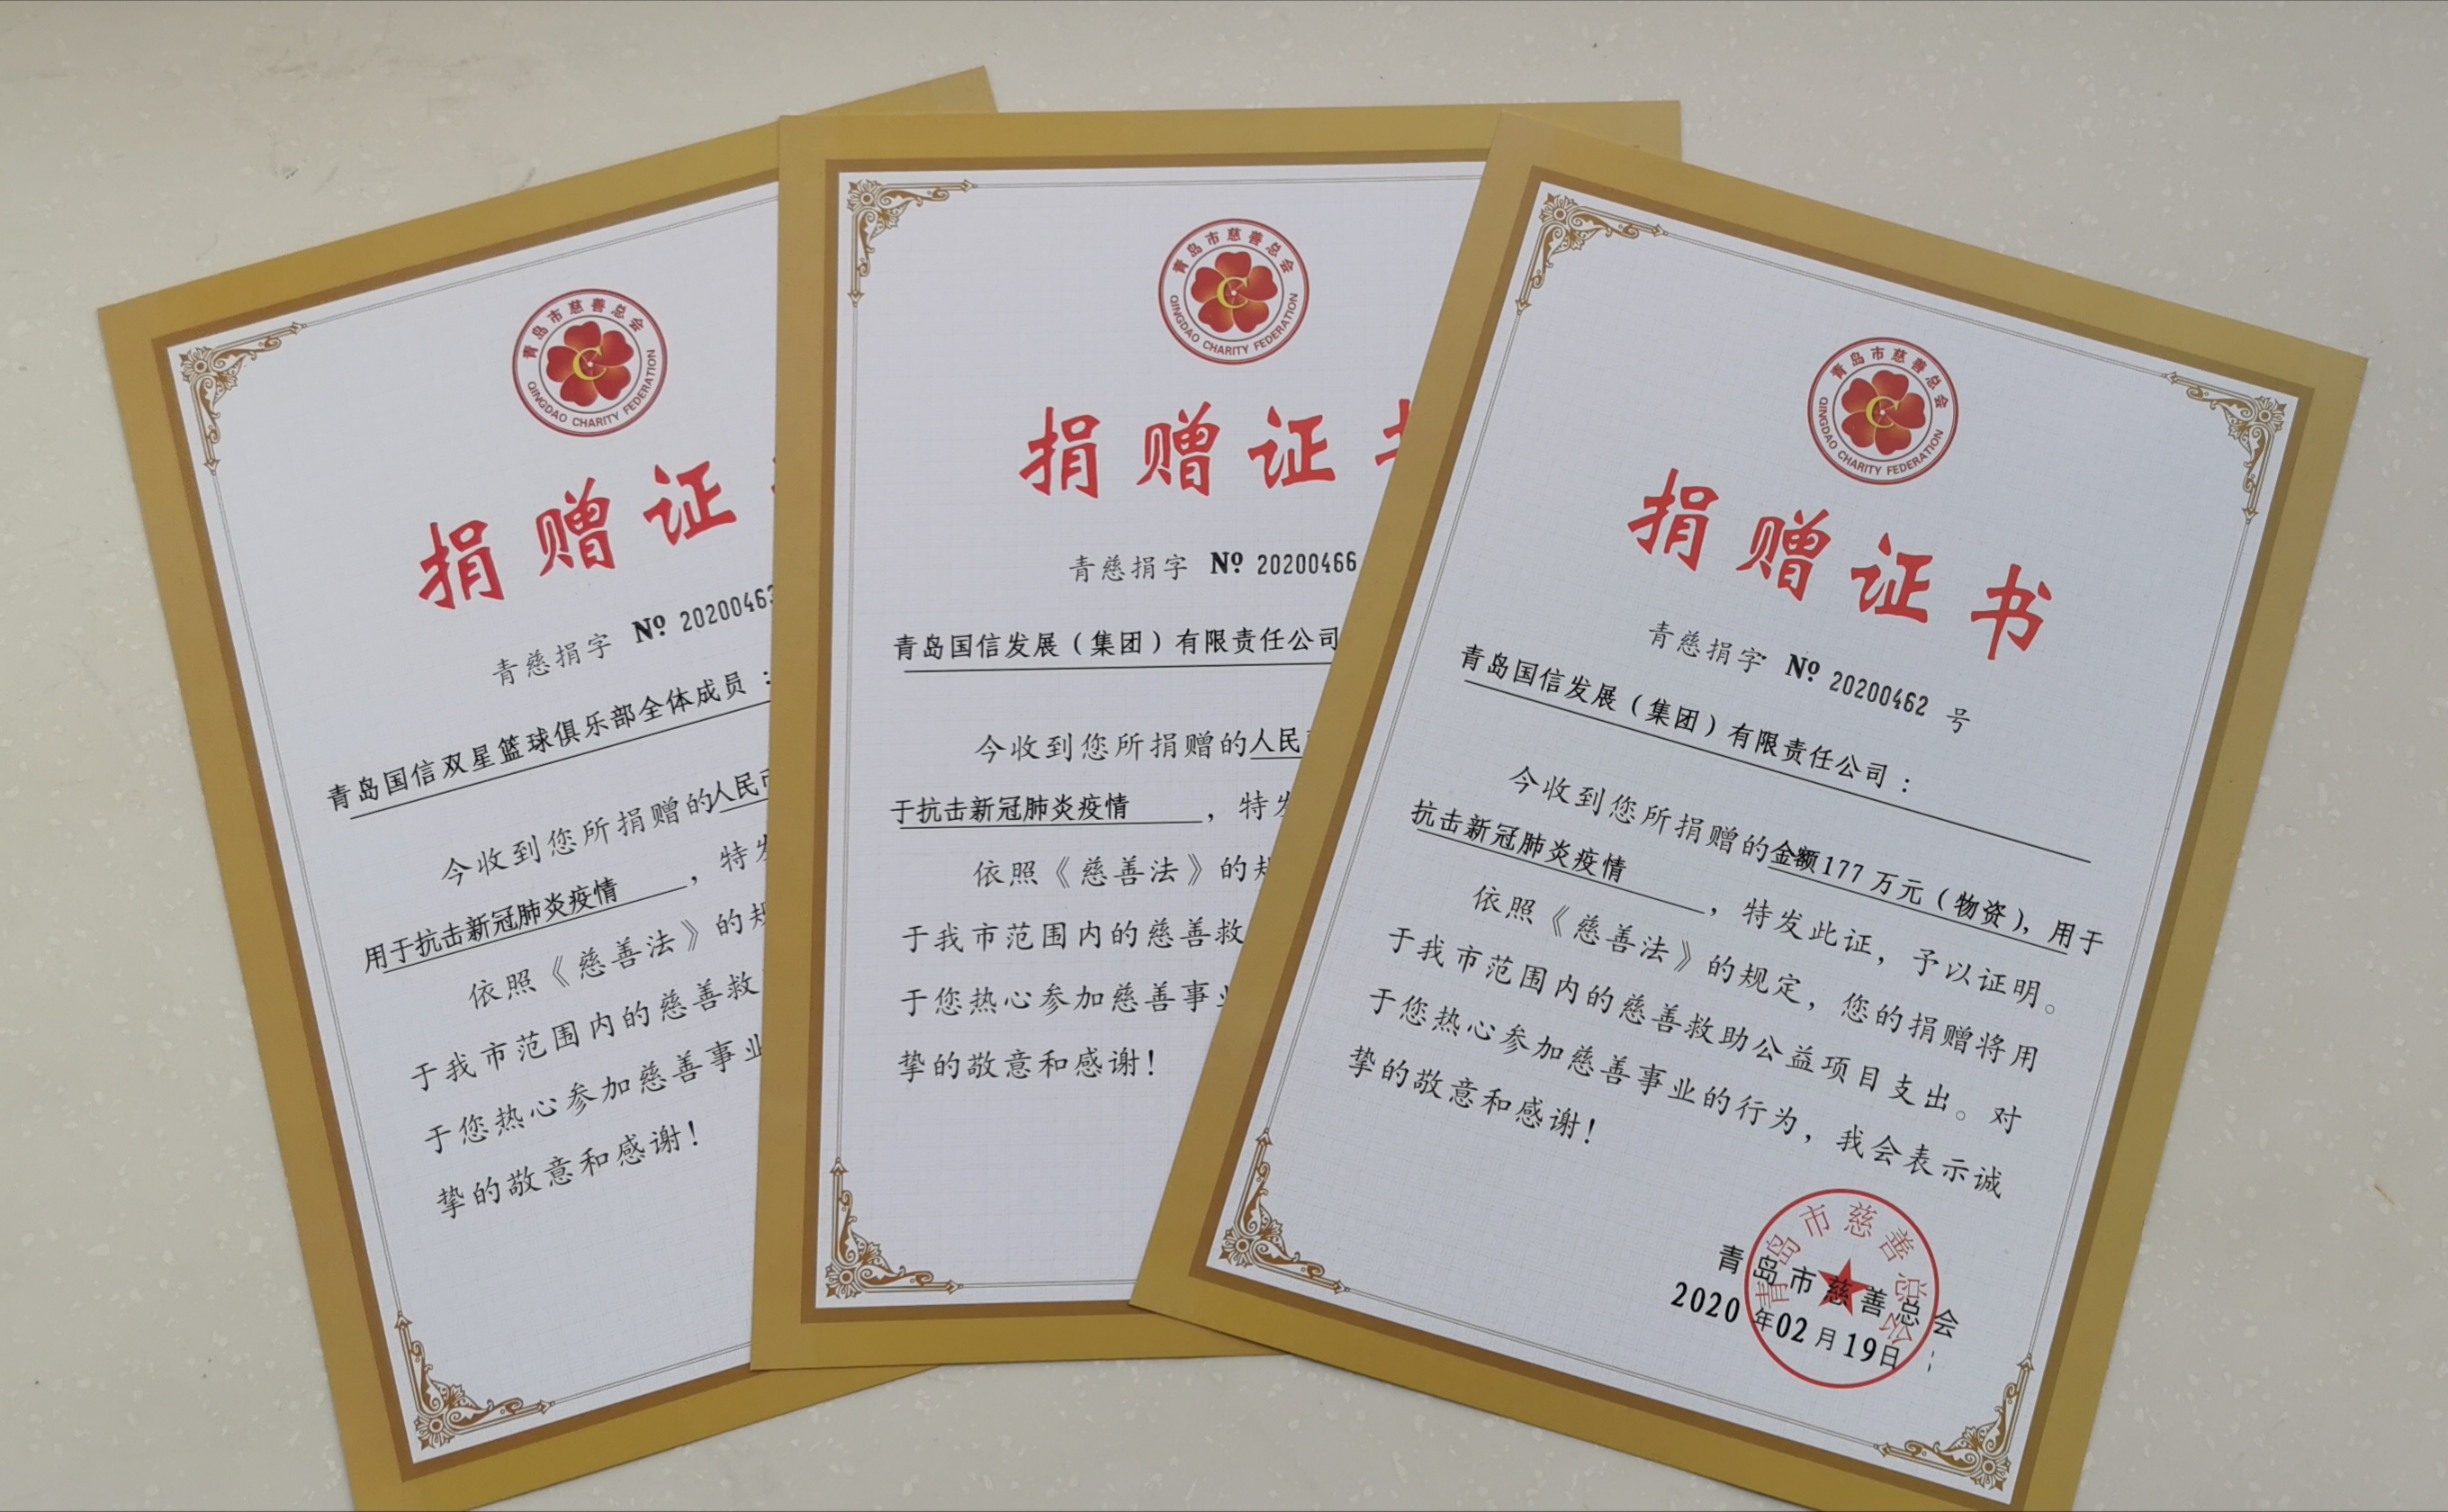 青岛市慈善总会
QINGDAO CHARITY FEDERATION
捐赠证
青慈捐字 № 20200463
青岛国信双星篮球俱乐部全体成员：
今收到您所捐赠的人民
用于抗击新冠肺炎疫情，特
依照《慈善法》的规
于我市范围内的慈善救
于您热心参加慈善事业
挚的敬意和感谢！
青岛市慈善总会
QINGDAO CHARITY FEDERATION
捐赠证书
青慈捐字 № 20200466
青岛国信发展（集团）有限责任公司
今收到您所捐赠的人民
于抗击新冠肺炎疫情，特发
依照《慈善法》的规
于我市范围内的慈善救
于您热心参加慈善事业
挚的敬意和感谢！
青岛市慈善总会
QINGDAO CHARITY FEDERATION
捐赠证书
青慈捐字 № 20200462 号
青岛国信发展（集团）有限责任公司：
今收到您所捐赠的金额177万元（物资），用于
抗击新冠肺炎疫情，特发此证，予以证明。
依照《慈善法》的规定，您的捐赠将用
于我市范围内的慈善救助公益项目支出。对
于您热心参加慈善事业的行为，我会表示诚
挚的敬意和感谢！
青岛市慈善总会
青岛市慈善总会
2020年02月19日